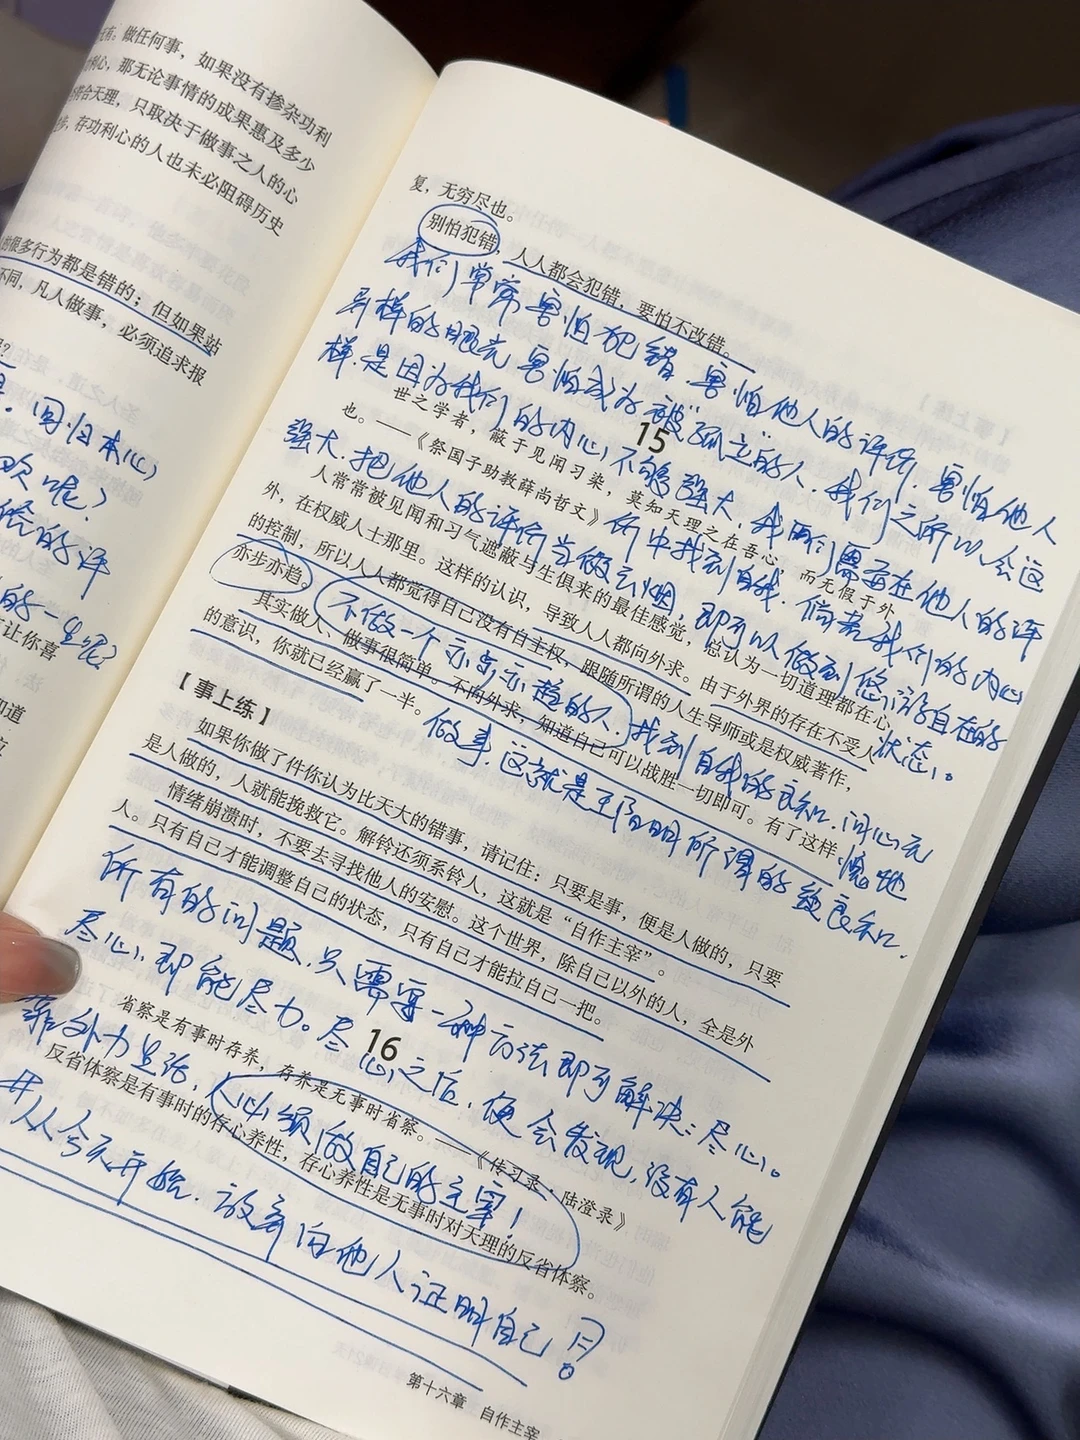 有。做任何事，如果没有掺杂功利
利心，那无论事情的成果惠及多少
符合天理，只取决于做事之人的心
步，存功利心的人也未必阻碍历史
的很多行为都是错的；但如果站
不同，凡人做事，必须追求报
回归本心，
欢呢？
的评
的一生呢？
让你喜
知道
复，无穷尽也。
别怕犯错，人人都会犯错，要怕不改错。
我们常常害怕犯错，害怕他人的评价，害怕他人
异样的眼光，害怕成为被“孤立”的人，我们之所以会这
样，是因为我们的内心不够强大，我们需要在他人的评
15
世之学者，蔽于见闻习染，莫知天理之在吾心，而无假于外
也。——《祭国子助教薛尚哲文》
价中找到自我，倘若我们的内心
强大，把他人的评价当做云烟，即可以做到悠游自在的
状态。
人常常被见闻和习气遮蔽与生俱来的最佳感觉，总认为一切道理都在心
外，在权威人士那里。这样的认识，导致人人都向外求。由于外界的存在不受人
的控制，所以人人都觉得自己没有自主权，跟随所谓的人生导师或是权威著作，
亦步亦趋。
不做一个亦步亦趋的人，找到自我的良知，问心无愧地
做事，这就是王阳明所谓的致良知。
其实做人、做事很简单。不向外求，知道自己可以战胜一切即可。有了这样
的意识，你就已经赢了一半。
【事上练】
如果你做了件你认为比天大的错事，请记住：只要是事，便是人做的，只要
是人做的，人就能挽救它。解铃还须系铃人，这就是“自作主宰”。
情绪崩溃时，不要去寻找他人的安慰。这个世界，除自己以外的人，全是外
人。只有自己才能调整自己的状态，只有自己才能拉自己一把。
所有的问题，只需要一种方法即可解决：尽心。
尽心，即能尽力。尽心之后，便会发现，没有人能
靠外力生活，人必须做自己的主宰！
16
省察是有事时存养，存养是无事时省察。——《传习录·陆澄录》
反省体察是有事时的存心养性，存心养性是无事时对天理的反省体察。
#从今天开始，放弃向他人证明自己！
第十六章 自作主宰